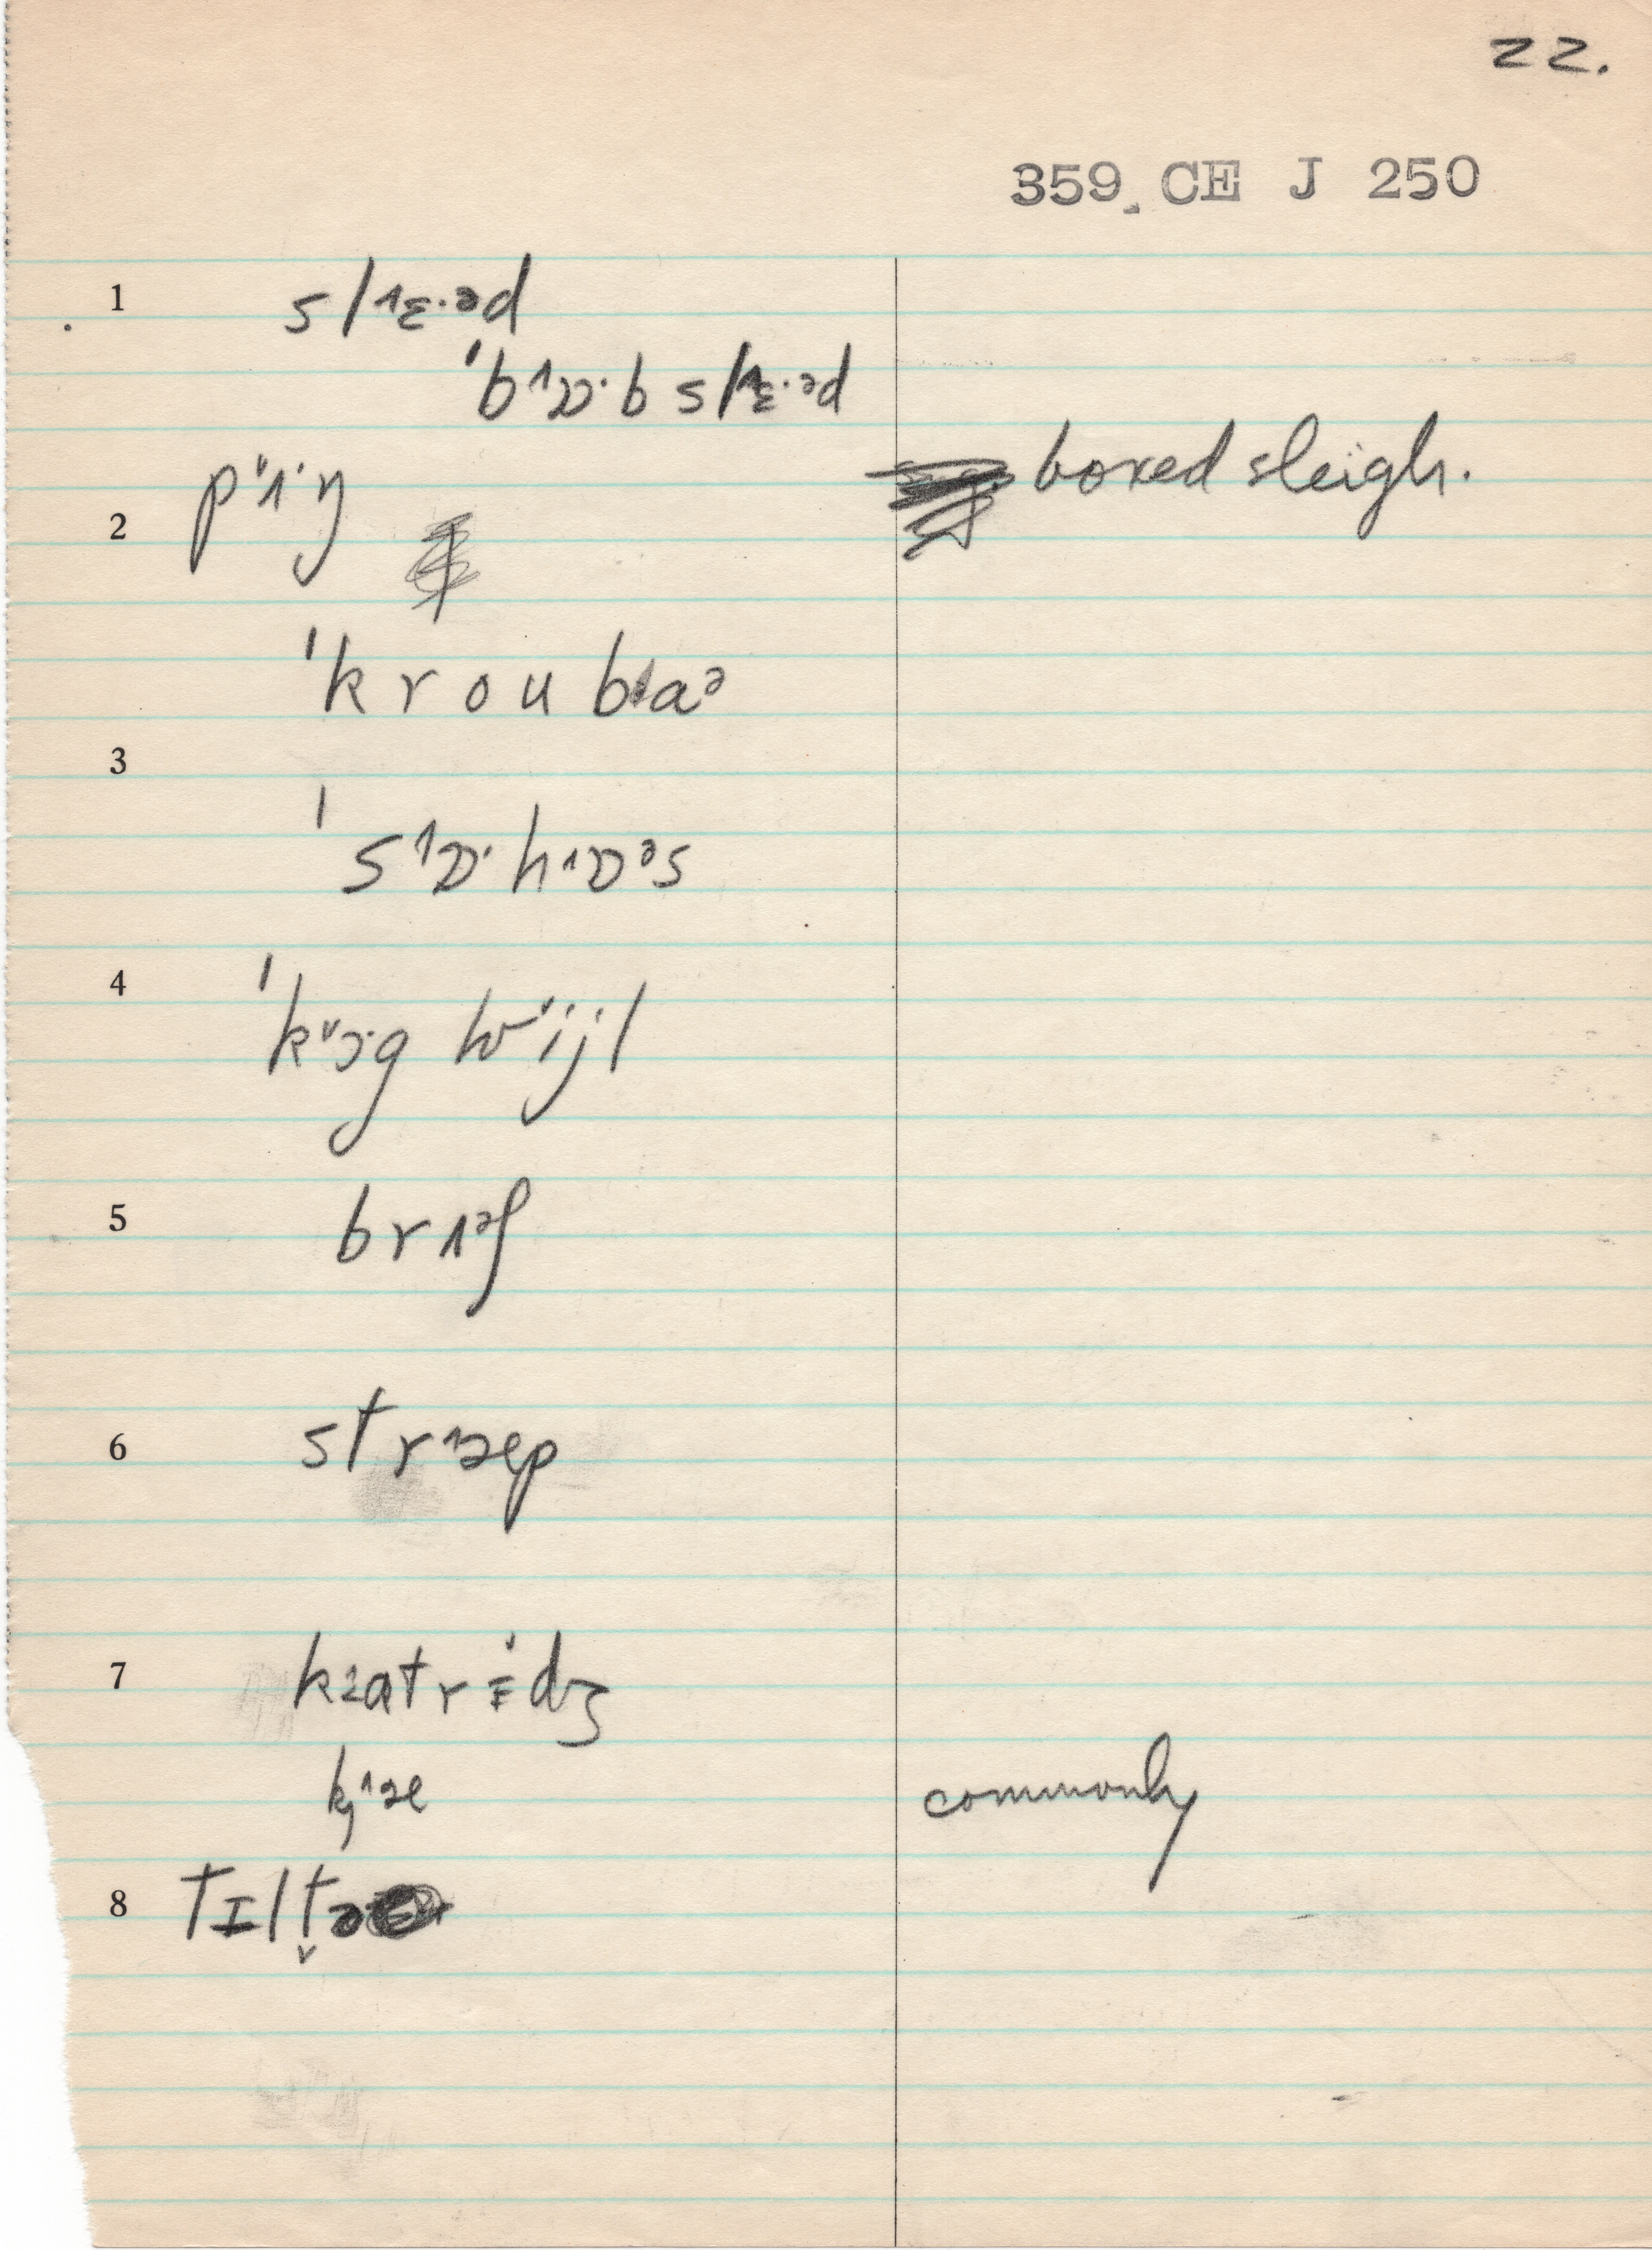 22.
359 CE J 250
1 sl˄ɛ·əd
ˈb˄ɒ·b sl˄ɛ·əd
boxed sleigh.
p˅ɪ·ŋ
2
ˈkroub˂aᵊ
3
ˈs˄ɒ·h˄ɒᵊs
4
ˈk˅ɔ·g hw˅i·jl
5 br˄ɪᵊʃ
6 str˄æp
7 katrɛdʒ
kj˄æ commonly
8 tɪlt̬ə